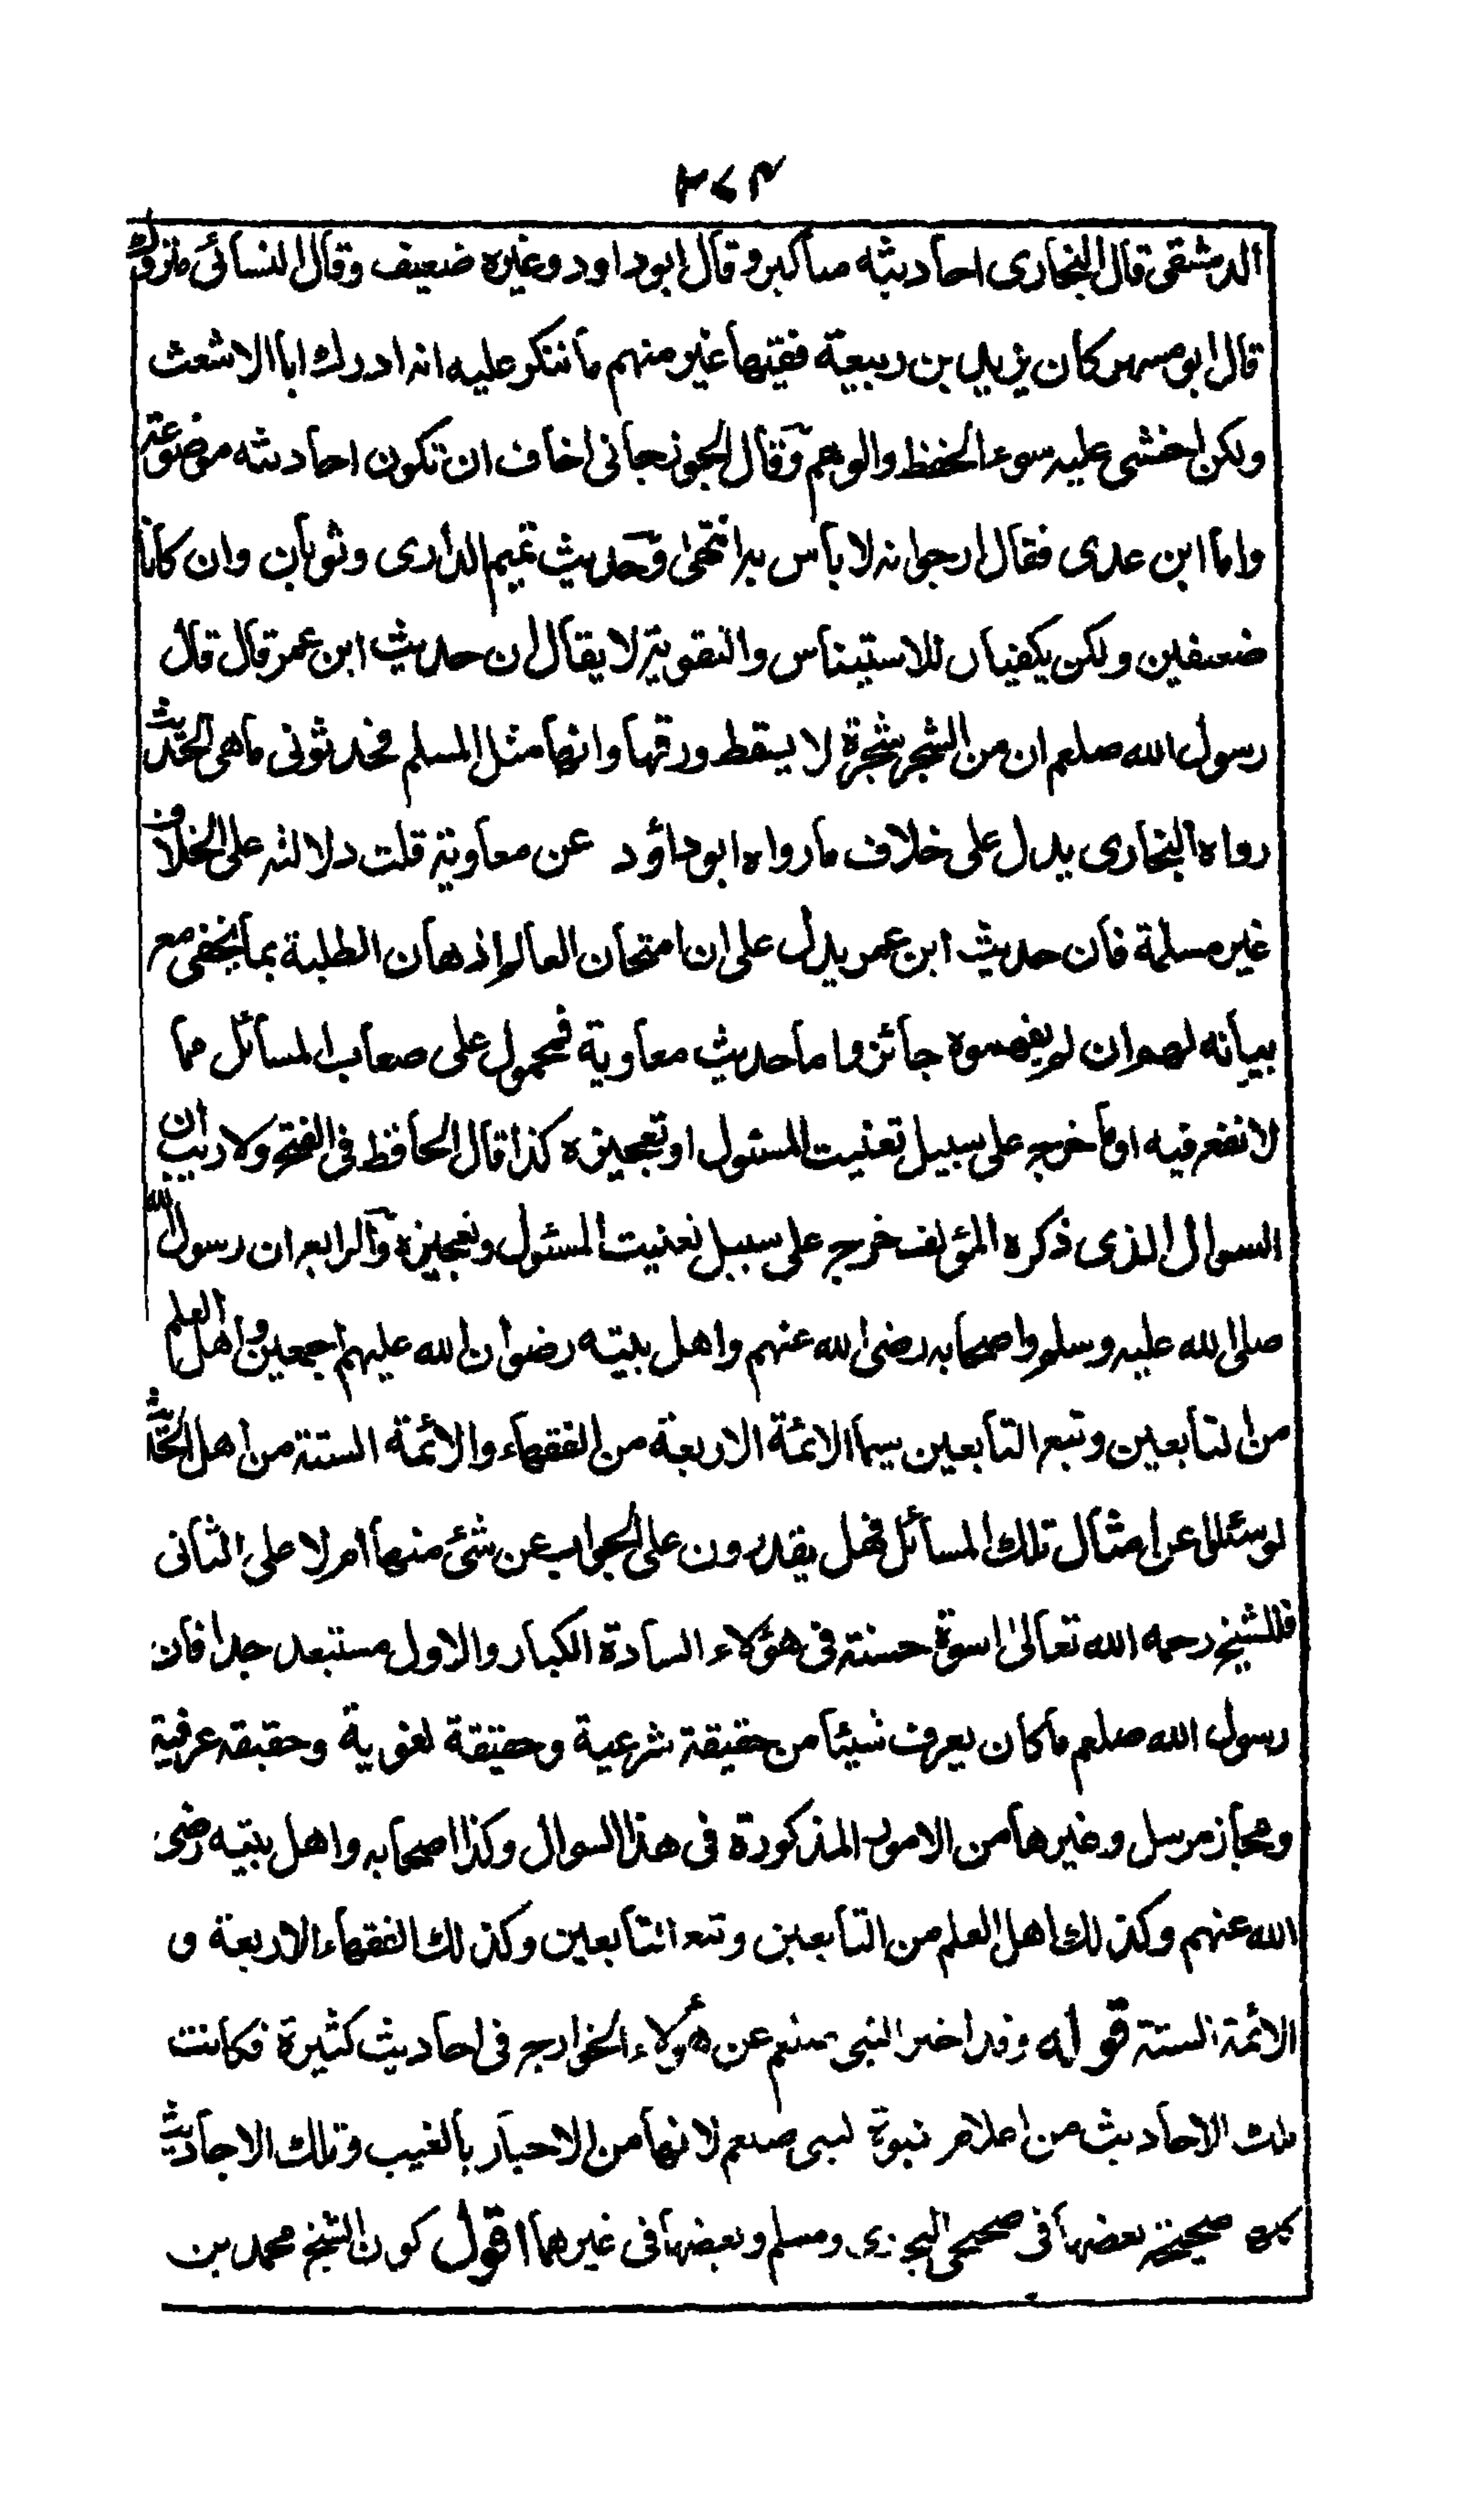 ٣٧٤
الدمشقى قال البخارى احاديثه مناكير وقال ابو داود وغيره ضعيف وقال النسائى متروك
قال ابو مسهر كان يزيد بن ربيعة فقيها غير متهم ما ننكر عليه انه ادرك ابا الاشعث
ولكن اخشى عليه سوء الحفظ والوهم وقال الجوزجانى اخاف ان تكون احاديثه موضوعة
واما ابن عدى فقال ارجو انه لا بأس به انتهى وحديث تميم الدارى وثوبان وان كانا
ضعيفين ولكن يكفيان للاستيناس والتقوية لا يقال ان حديث ابن عمر قال قال
رسول الله صلعم ان من الشجر شجرة لا يسقط ورقها وانها مثل المسلم فحدثونى ما هى الحديث
رواه البخارى يدل على خلاف ما رواه ابو داؤد عن معاوية قلت دلالته على الخلاف
غير مسلمة فان حديث ابن عمر يدل على ان امتحان العالم اذهان الطلبة بما يخفى مع
بيانه لهم ان لم يفهموه جائز واما حديث معاوية فمحمول على صعاب المسائل مما
لا نفع فيه او ما خرج على سبيل تعنيت المسئول او تعجيزه كذا قال الحافظ فى الفتح ولا ريب ان
السوال الذى ذكره المؤلف خرج على سبيل تعنيت المسئول وتعجيزه والرابع ان رسول الله
صلى الله عليه وسلم واصحابه رضى الله عنهم واهل بيته رضوان الله عليهم اجمعين واهل العلم
من التابعين وتبع التابعين سيما الائمة الاربعة من الفقهاء والائمة الستة من اهل الحديث
لو سئلوا عن امثال تلك المسائل فهل يقدرون على الجواب عن شئ منها ام لا على الثانى
فللشيخ رحمه الله تعالى اسوة حسنة فى هؤلاء السادة الكبار والاول مستبعد جدا فان
رسول الله صلعم ما كان يعرف شيئا من حقيقة شرعية وحقيقة لغوية وحقيقة عرفية
ومجاز مرسل وغيرها من الامور المذكورة فى هذا السوال وكذا اصحابه واهل بيته رضى
الله عنهم وكذلك اهل العلم من التابعين وتبع التابعين وكذلك الفقهاء الاربعة و
الائمة الستة قوله وقد اخبر النبى صلعم عن هؤلاء الخوارج فى احاديث كثيرة فكانت
تلك الاحاديث من اعلام نبوة النبى صلعم لانها من الاخبار بالغيب وتلك الاحاديث
كلها صحيحة بعضها فى صحيحى البخارى ومسلم وبعضها فى غيرهما اقول كون الشيخ محمد بن